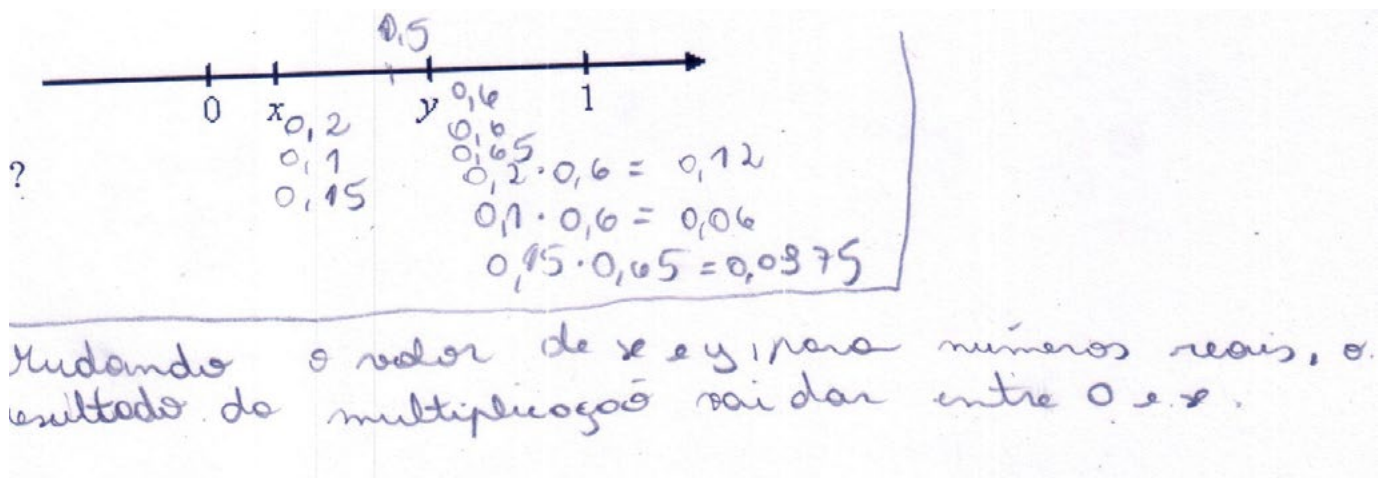 0,5
0 x y 1
0,2 0,6
0,1 0,6
0,15 0,65
?
0,2·0,6 = 0,12
0,1·0,6 = 0,06
0,15·0,65 = 0,0975
Mudando o valor de x e y, para números reais, o
esultado da multiplicação vai dar entre 0 e x.